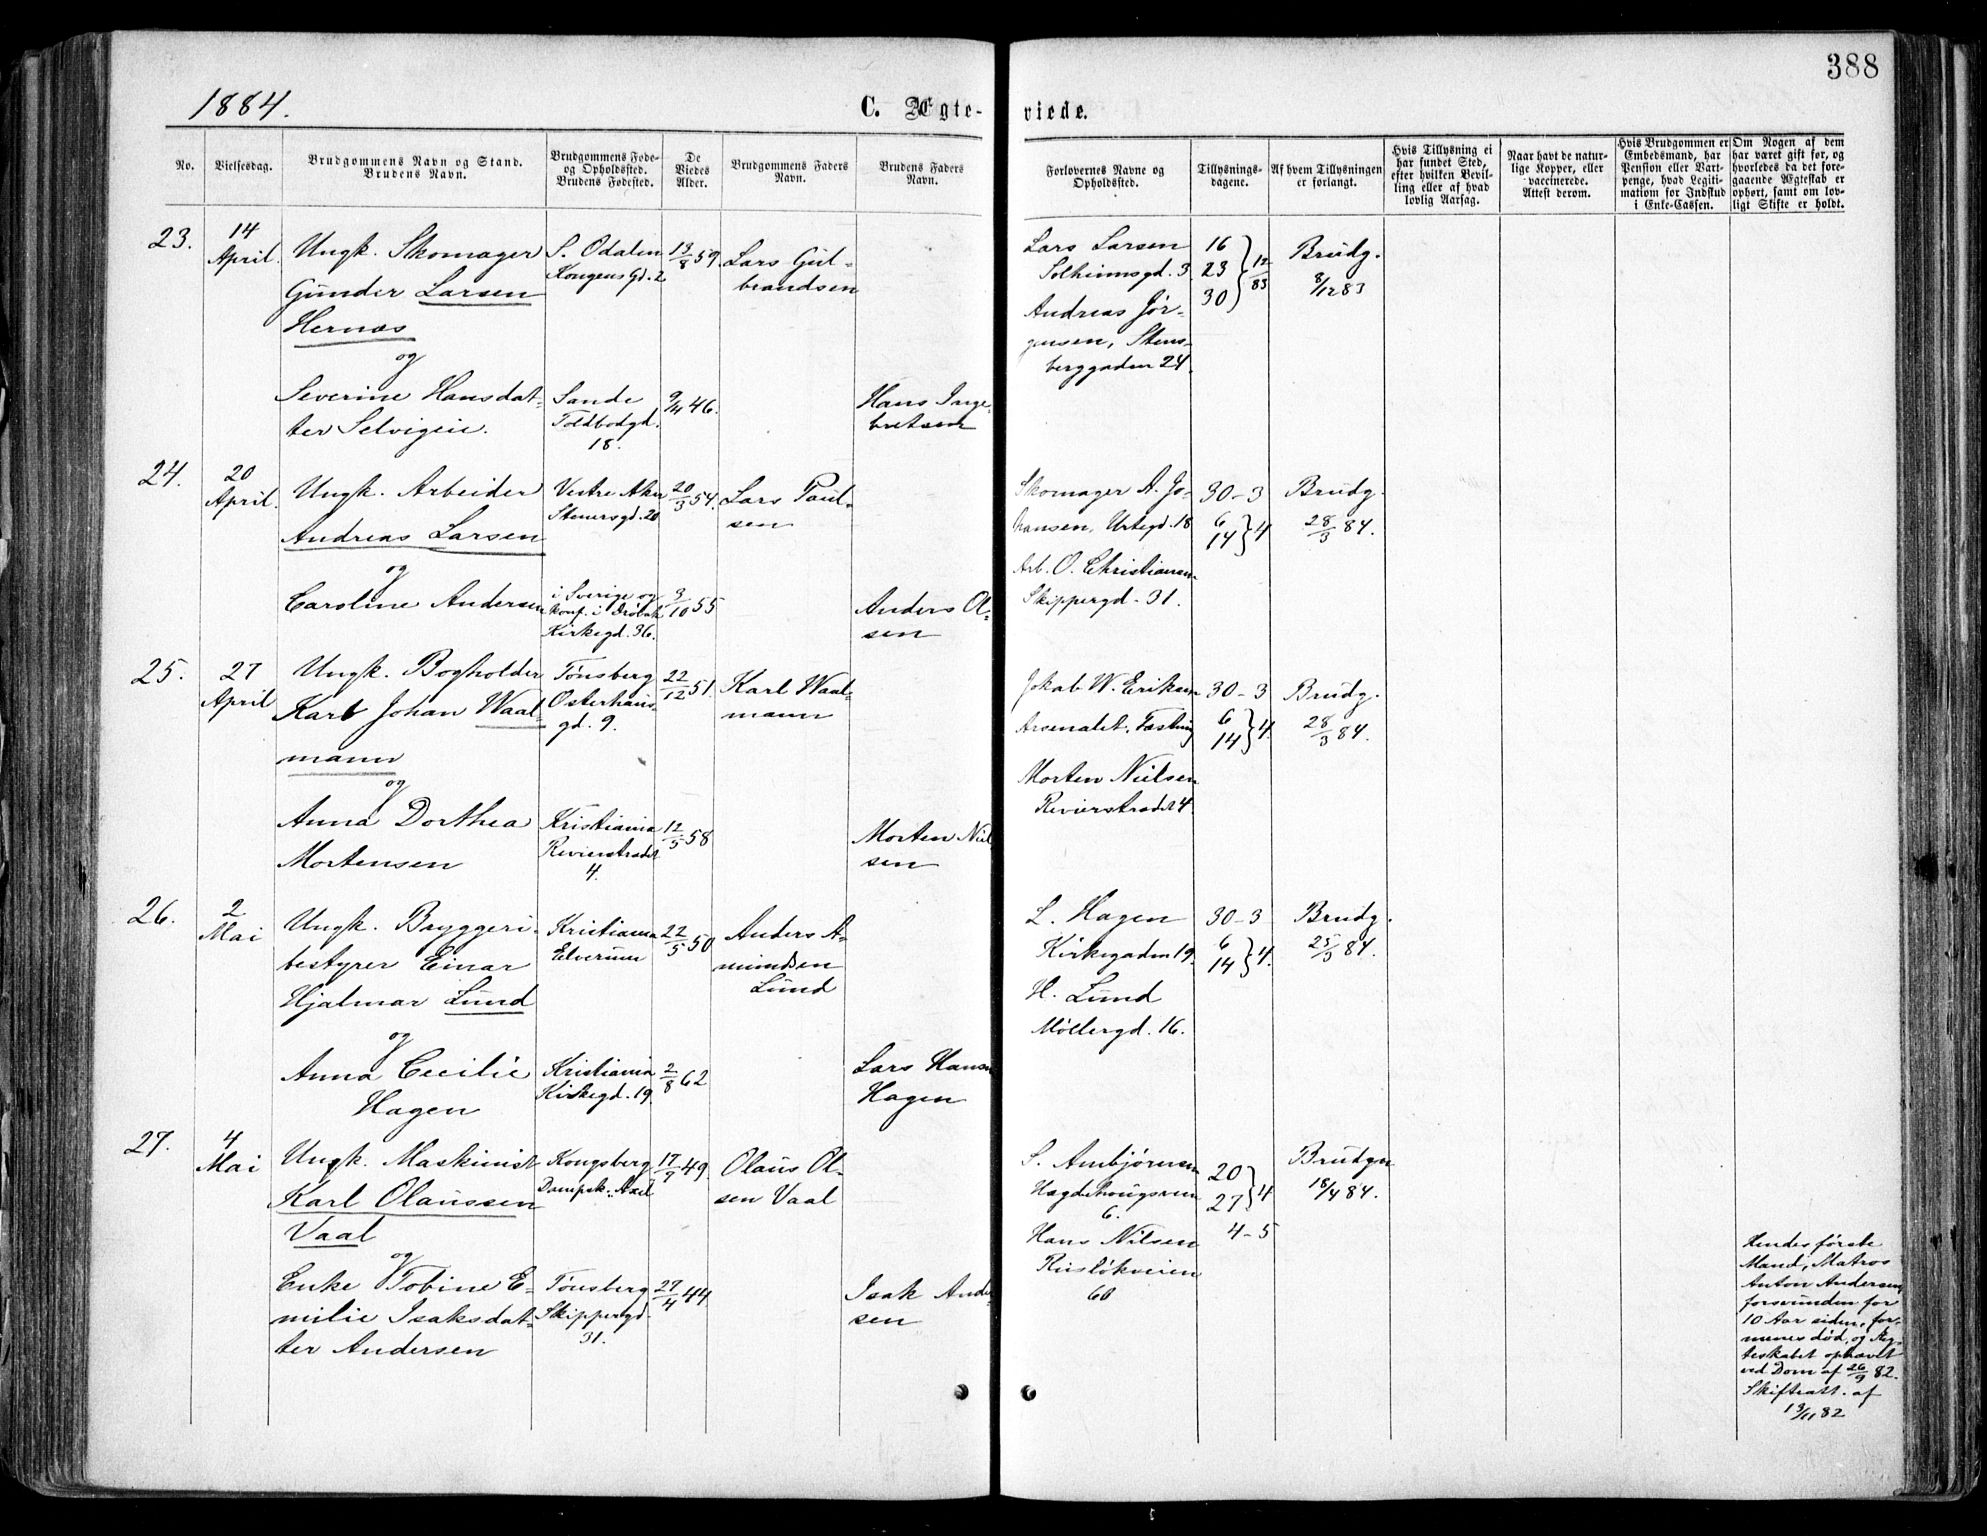 388
1884.
C. Ægte-
viede.
No.
Vielsesdag.
Brudgommens Navn og Stand.
Brudens Navn.
Brudgommens Føde-
og Opholdssted.
Brudens Fødested.
De
Viedes
Alder.
Brudgommens Faders
Navn.
Brudens Faders
Navn.
Forlovernes Navne og
Opholdssted.
Tillysnings-
dagene.
Af hvem Tillysningen
er forlangt.
Hvis Tillysning ei
har fundet Sted,
efter hvilken Bevil-
ling eller af hvad
lovlig Aarsag.
Naar havt de natur-
lige Kopper, eller
vaccinerede.
Attest derom.
Hvis Brudgommen er
Embedsmand, har
Pension eller Vart-
penge, hvad Legiti-
mation for Indskud
i Enke-Cassen.
Om Nogen af dem
har været gift før, og
hvorledes da det fore-
gaaende Ægteskab er
ophørt, samt om lov-
ligt Skifte er holdt.
23.
14
April.
Ungk. Skomager
Gunder Larsen
Hernæs
og
Severine Hansdat-
ter Selvigeie.
S. Odalen
Kongens Gd. 2
Sande
Toldbodgd.
18.
13/8 59.
9/4 46.
Lars Gul-
brandsen
Hans Inge-
bretsen
Lars Larsen
Solheimsgd. 3
Andreas Jør-
gensen, Stens-
berggaden 24.
16
23 } 12/83
30
Brudg.
8/12 83
24.
20
April.
Ungk. Arbeider
Andreas Larsen
og
Caroline Andersen
Vestre Aker
Stenersgd. 20
i Sverige og
konf. i Drøbak
Kirkegd. 36.
20/3 54.
3/10 55
Lars Paul-
sen
Anders Ol-
sen
Skomager A. Jo-
hansen, Urtegd. 18
Arb. O. Christiansen
Skippergd. 31.
30-3
6
14 } 4
Brudg.
28/3 84.
25.
27
April
Ungk. Bogholder
Karl Johan Waal-
mann
og
Anna Dorthea
Mortensen
Tønsberg
Osterhaus-
gd. 9.
Kristiania
Revierstrædet
4.
22/12 51.
12/5 58
Karl Waal-
mann
Morten Niel-
sen
Jakob W. Eriksen
Arsenalet, Fæstning
Morten Nielsen
Revierstrædet 4.
30-3
6
14 } 4.
Brudg.
28/3 84.
26.
2
Mai
Ungk. Bryggeri-
bestyrer Einar
Hjalmar Lund
og
Anna Cecilie
Hagen
Kristiania
Elverum
Kristiania
Kirkegd. 19.
22/5 50
2/8 62
Anders A-
mundsen
Lund
Lars Hansen
Hagen
L. Hagen
Kirkegaden 19.
H. Lund
Møllergd. 16.
30-3
6
14 } 4.
Brudg.
25/3 84.
27.
4
Mai
Ungk. Maskinist
Karl Olaussen
Vaal
og
Enke Tobine E-
milie Isaksdat-
ter Andersen
Kongsberg
Dampsk. Axel
Tønsberg
Skippergd.
31.
17/7 49.
27/4 44
Olaus Ol-
sen Vaal
Isak Ander-
sen
S. Ambjørnsen
Hægdehougsveien
6.
Hans Nilsen
Ruseløkveien
60
20
27 } 4
4-5
Brudgn
18/4 84.
Hendes første
Mand, Matros
Anton Andersen,
forsvunden for
10 Aar siden, for-
menes død, og Æg-
teskabet ophævet
ved Dom af 26/9 82.
Skifteatt. af
13/11 82